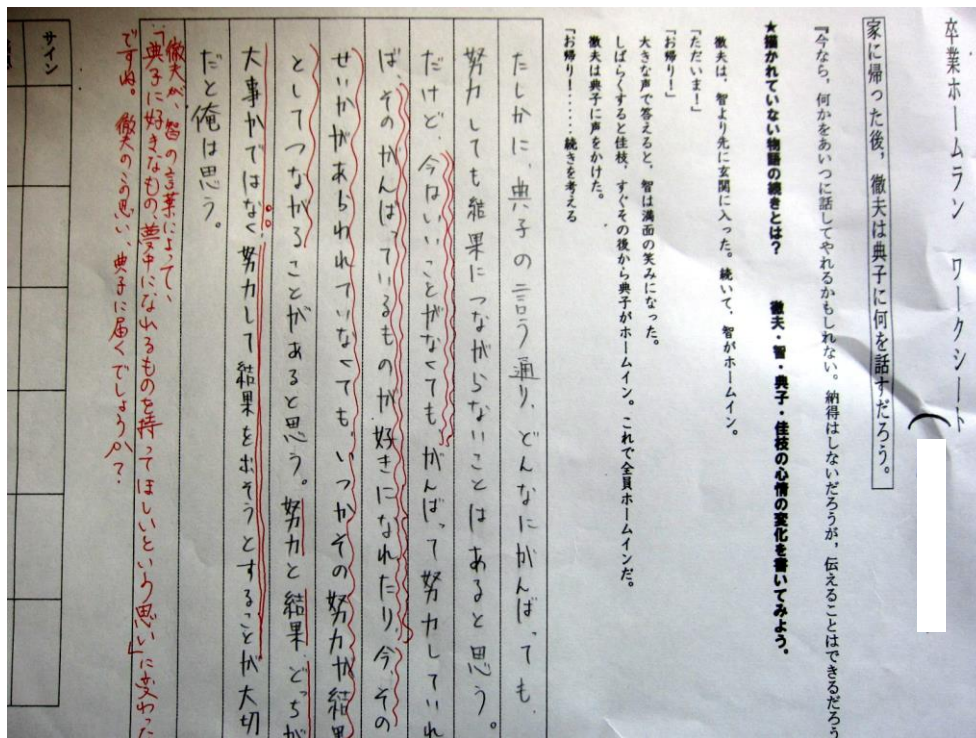 卒業ホームラン ワークシート (
家に帰った後,徹夫は典子に何を話すだろう。
『今なら,何かをあいつに話してやれるかもしれない。納得はしないだろうが,伝えることはできるだろう
★描かれていない物語の続きとは? 徹夫・智・典子・佳枝の心情の変化を書いてみよう。
徹夫は,智より先に玄関に入った。続いて,智がホームイン。
「ただいま!」
「お帰り!」
大きな声で答えると,智は満面の笑みになった。
しばらくすると佳枝,すぐその後から典子がホームイン。これで全員ホームインだ。
徹夫は典子に声をかけた。
「お帰り!・・・・・続きを考える
たしかに、典子の言う通り、どんなにがんばっても、
努力しても結果につながらないことはあると思う。
だけど、今はいいことがなくても、がんばって努力していれ
ば、そのがんばっているものが好きになれたり、今、その
せいかがあらわれていなくても、いつかその努力が結果
としてつながることがあると思う。努力と結果、どっちが
大事かではなく、努力して結果を出そうとすることが大切
だと俺は思う。
徹夫が、智の言葉によって、
「典子に好きなもの、夢中になれるものを持ってほしいという思い」に変わった
ですね。徹夫のこの思い、典子に届くでしょうか?
サイン